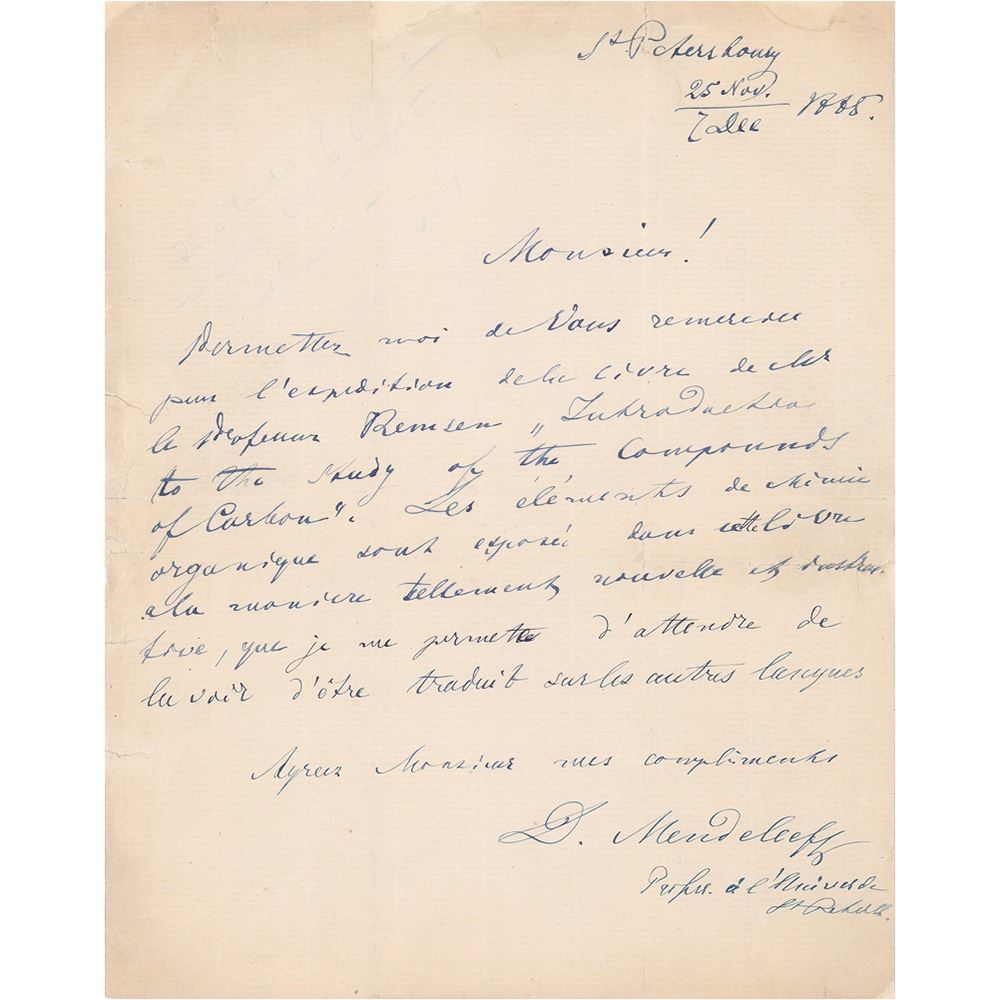 St Petersbourg
25 Nov.
7 Dec 1885.
Monsieur!
Permettez moi de Vous remercier
pour l'expedition de la livre de Mr
le Professeur Remsen „Introduction
to the study of the compounds
of Carbon". Les éléments de chimie
organique sont exposé dans cette livre
a la maniere tellement nouvelle et instruc-
tive, que je me permets d'attendre de
la voir d'être traduit sur les autres langues
Agreez Monsieur mes compliments
D. Mendeleeff
Profess. à l'Univer. de
St Petersb.